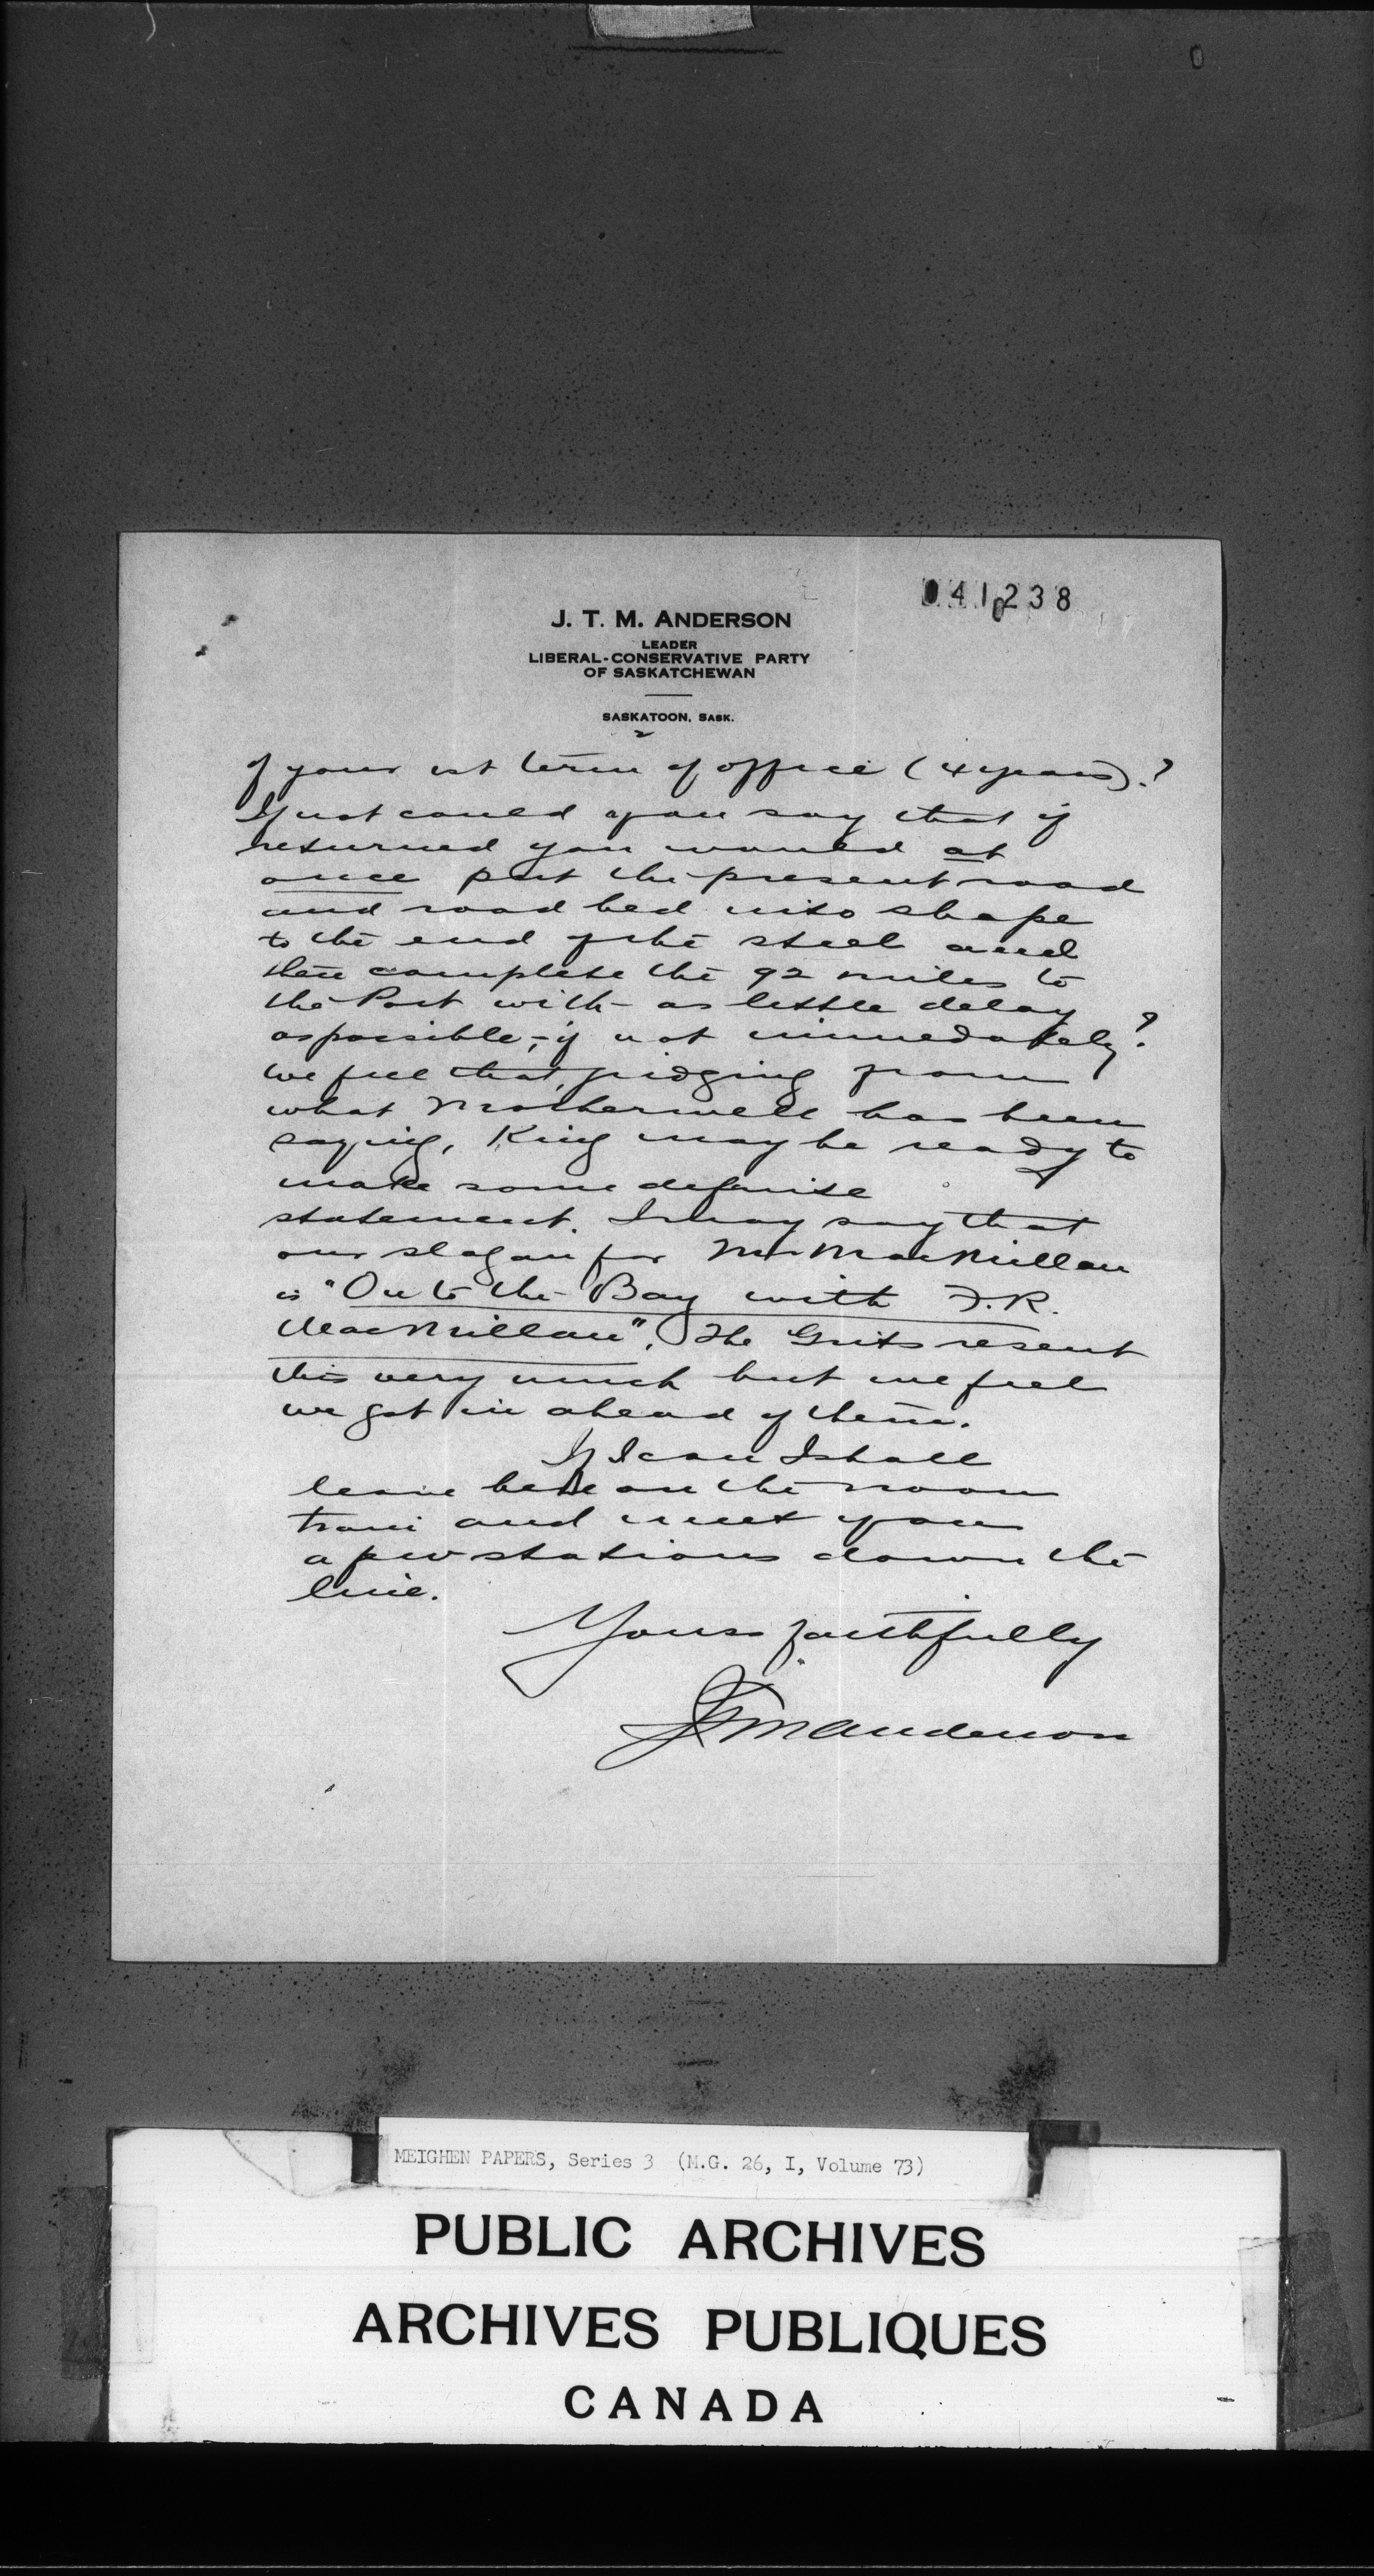 041238
J. T. M. ANDERSON
LEADER
LIBERAL-CONSERVATIVE PARTY
OF SASKATCHEWAN
SASKATOON, SASK.
2
of your 1st term of office (4 years).?
If not could you say that if
returned you would at
once put the present road
and road bed into shape
to the end of the steel and
then complete the 92 miles to
the Port with as little delay
as possible, – if not immediately?
We feel that, judging from
what Motherwell has been
saying, King may be ready to
make some definite
statement. I may say that
our slogan for Mr MacMillan
is "On to the Bay with F.R.
MacMillan". The Grits resent
this very much but we feel
we got in ahead of them.
If I can I shall
leave here on the noon
train and meet you
a few stations down the
line.
Yours faithfully
JTM Anderson
MEIGHEN PAPERS, Series 3 (M.G. 26, I, Volume 73)
PUBLIC ARCHIVES
ARCHIVES PUBLIQUES
CANADA